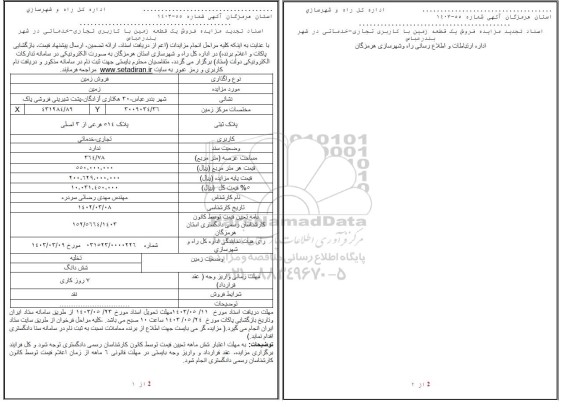 اداره کل راه و شهرسازی
استان هرمزگان آگهی شماره ۵۵-۱۴۰۳
اسناد تجدید مزایده فروش یک قطعه زمین با کاربری تجاری-خدماتی در شهر بندرعباس
با عنایت به اینکه کلیه مراحل انجام مزایدات (اعم از دریافت اسناد، ارائه تضمین، ارسال پیشنهاد قیمت، بازگشایی
پاکات و اعلام برنده) در اداره کل راه و شهرسازی استان هرمزگان به صورت الکترونیکی در سامانه تدارکات
الکترونیکی دولت (ستاد) برگزار می گردد، متقاضیان محترم بایستی جهت ثبت نام در سامانه مذکور و دریافت نام
کاربری و رمز عبور به سایت www.setadiran.ir مراجعه فرمایند.
نوع واگذاری فروش زمین
مورد مزایده زمین
نشانی شهر بندرعباس-۳۰ هکتاری آزادگان-پشت شیرینی فروشی پاک
مختصات مرکز زمین ۳۰۰۹۰۳۴/۳۶ Y ۴۳۱۹۸۴/۸۹ X
پلاک ثبتی پلاک ۵۱۴ فرعی از ۳ اصلی
کاربری تجاری-خدماتی
وضعیت سند ندارد
مساحت عرصه (متر مربع) ۳۶۴/۷۸
قیمت هر متر مربع (ریال) ۵۵۰،۰۰۰،۰۰۰
قیمت پایه مزایده (ریال) ۲۰۰،۶۲۹،۰۰۰،۰۰۰
۵% قیمت کل (ریال) ۱۰،۰۳۱،۴۵۰،۰۰۰
نام کارشناس مهندس مهدی رسائی سردره
تاریخ کارشناسی ۱۴۰۳/۰۳/۰۸
نامه تعیین قیمت توسط کانون کارشناسان رسمی دادگستری استان هرمزگان ۱۵۹/۵۶۶۴/۱۴۰۳
رای هیات نمایندگی اداره کل راه و شهرسازی شماره ۰۳۱۵۹۳/۰۰۰۰۲۲۶ مورخ ۱۴۰۳/۰۳/۰۹
وضعیت زمین تخلیه
شش دانگ
مهلت زمانی واریز وجه ( عقد قرارداد) ۷ روز کاری
شرایط فروش نقد
توضیحات
مهلت دریافت اسناد مورخ ۱۱/ ۱۴۰۳/۰۵ مهلت تحویل اسناد مورخ ۲۳/ ۱۴۰۳/۰۵ از طریق سامانه ستاد ایران
وتاریخ بازگشایی پاکات مورخ ۲۴/ ۱۴۰۳/۰۵ ساعت ۱۰ صبح می باشد .کلیه مراحل فرخوان از طریق سایت ستاد
ایران انجام می گیرد.( مزایده گر می بایست جهت اطلاع از برنده معاملات نسبت به ثبت نام در سامانه ستا دادگستری
اقدام نماید.)
توضیحات: به مهلت اعتبار شش ماهه تعیین قیمت توسط کانون کارشناسان رسمی دادگستری توجه شود و کل فرایند
برگزاری مزایده، عقد قرارداد و واریز وجه بایستی در مهلت قانونی ۶ ماهه از زمان اعلام قیمت توسط کانون
کارشناسان رسمی دادگستری انجام شود.
2 از ۱
اداره کل راه و شهرسازی
استان هرمزگان آگهی شماره ۵۵-۱۴۰۳
اسناد تجدید مزایده فروش یک قطعه زمین با کاربری تجاری-خدماتی در شهر بندرعباس
اداره ارتباطات و اطلاع رسانی راه وشهرسازی هرمزگان
2 از ۲
۰۲۱-۸۸۳۴۹۶۷۰-۵